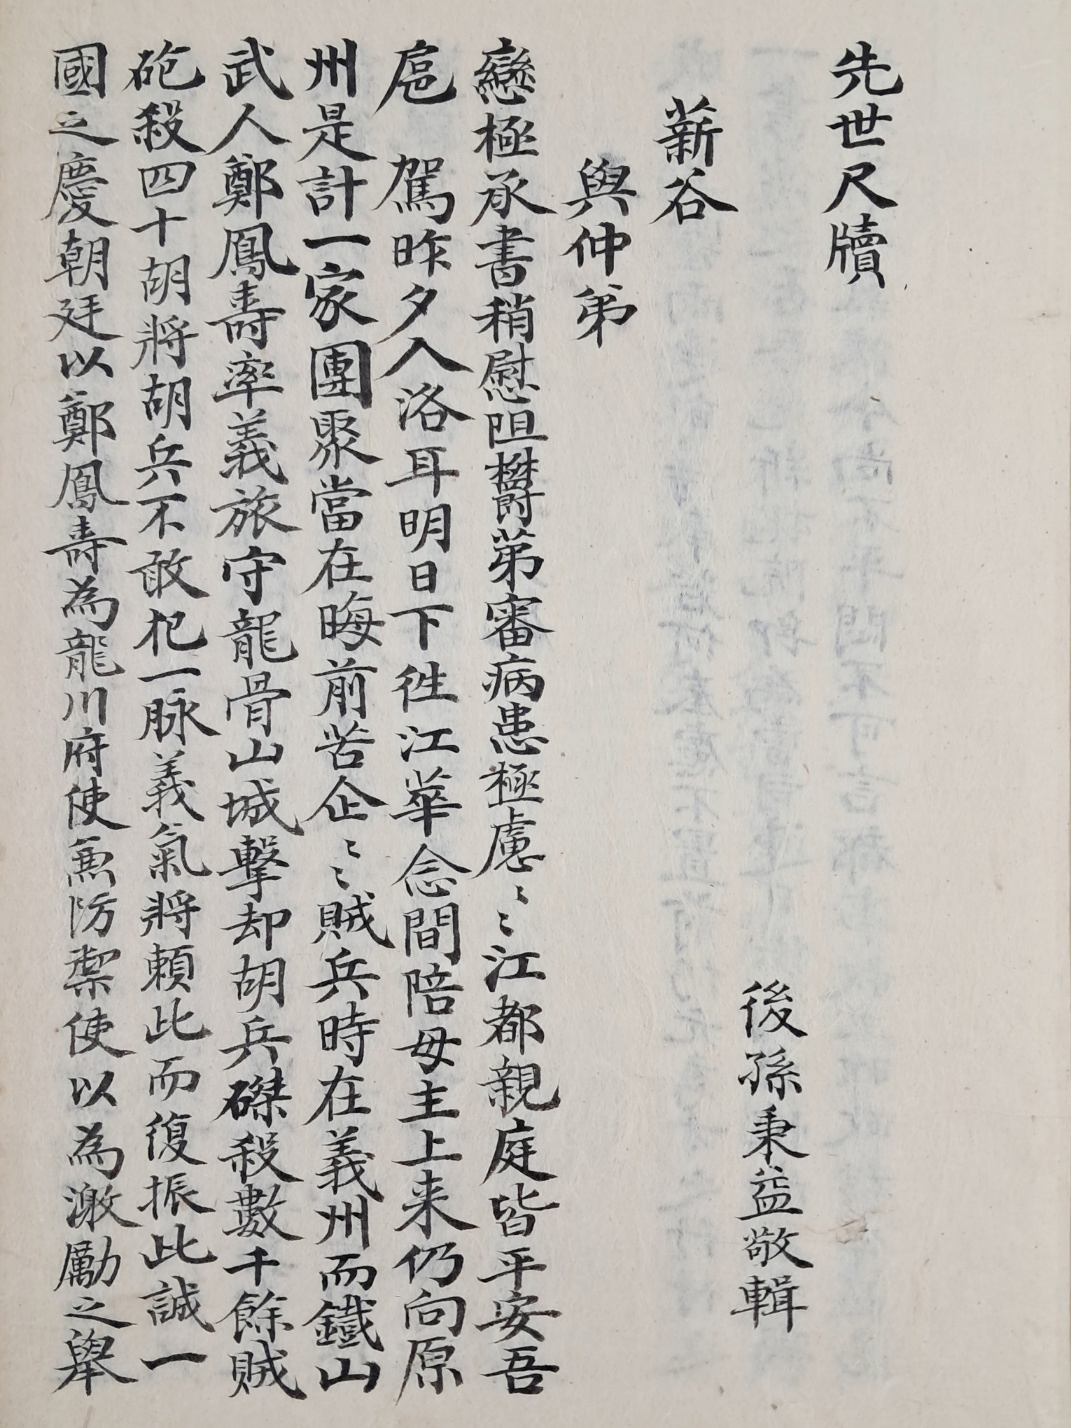 先世尺牘
後孫秉益敬輯
薪谷
與仲弟
戀極承書稍慰阻欝苐審病患極慮〻〻江都親庭皆平安吾
扈 駕昨夕入洛耳明日下徃江華念間陪母主上来仍向原
州是計一家團聚當在晦前苦企〻〻賊兵時在義州而鐵山
武人鄭鳳壽率義旅守龍骨山城擊却胡兵磔殺數千餘賊
砲殺四十胡將胡兵不敢犯一脉義氣將賴此而復振此誠一
國之慶朝廷以鄭鳳壽為龍川府使兼防禦使以為激勵之舉